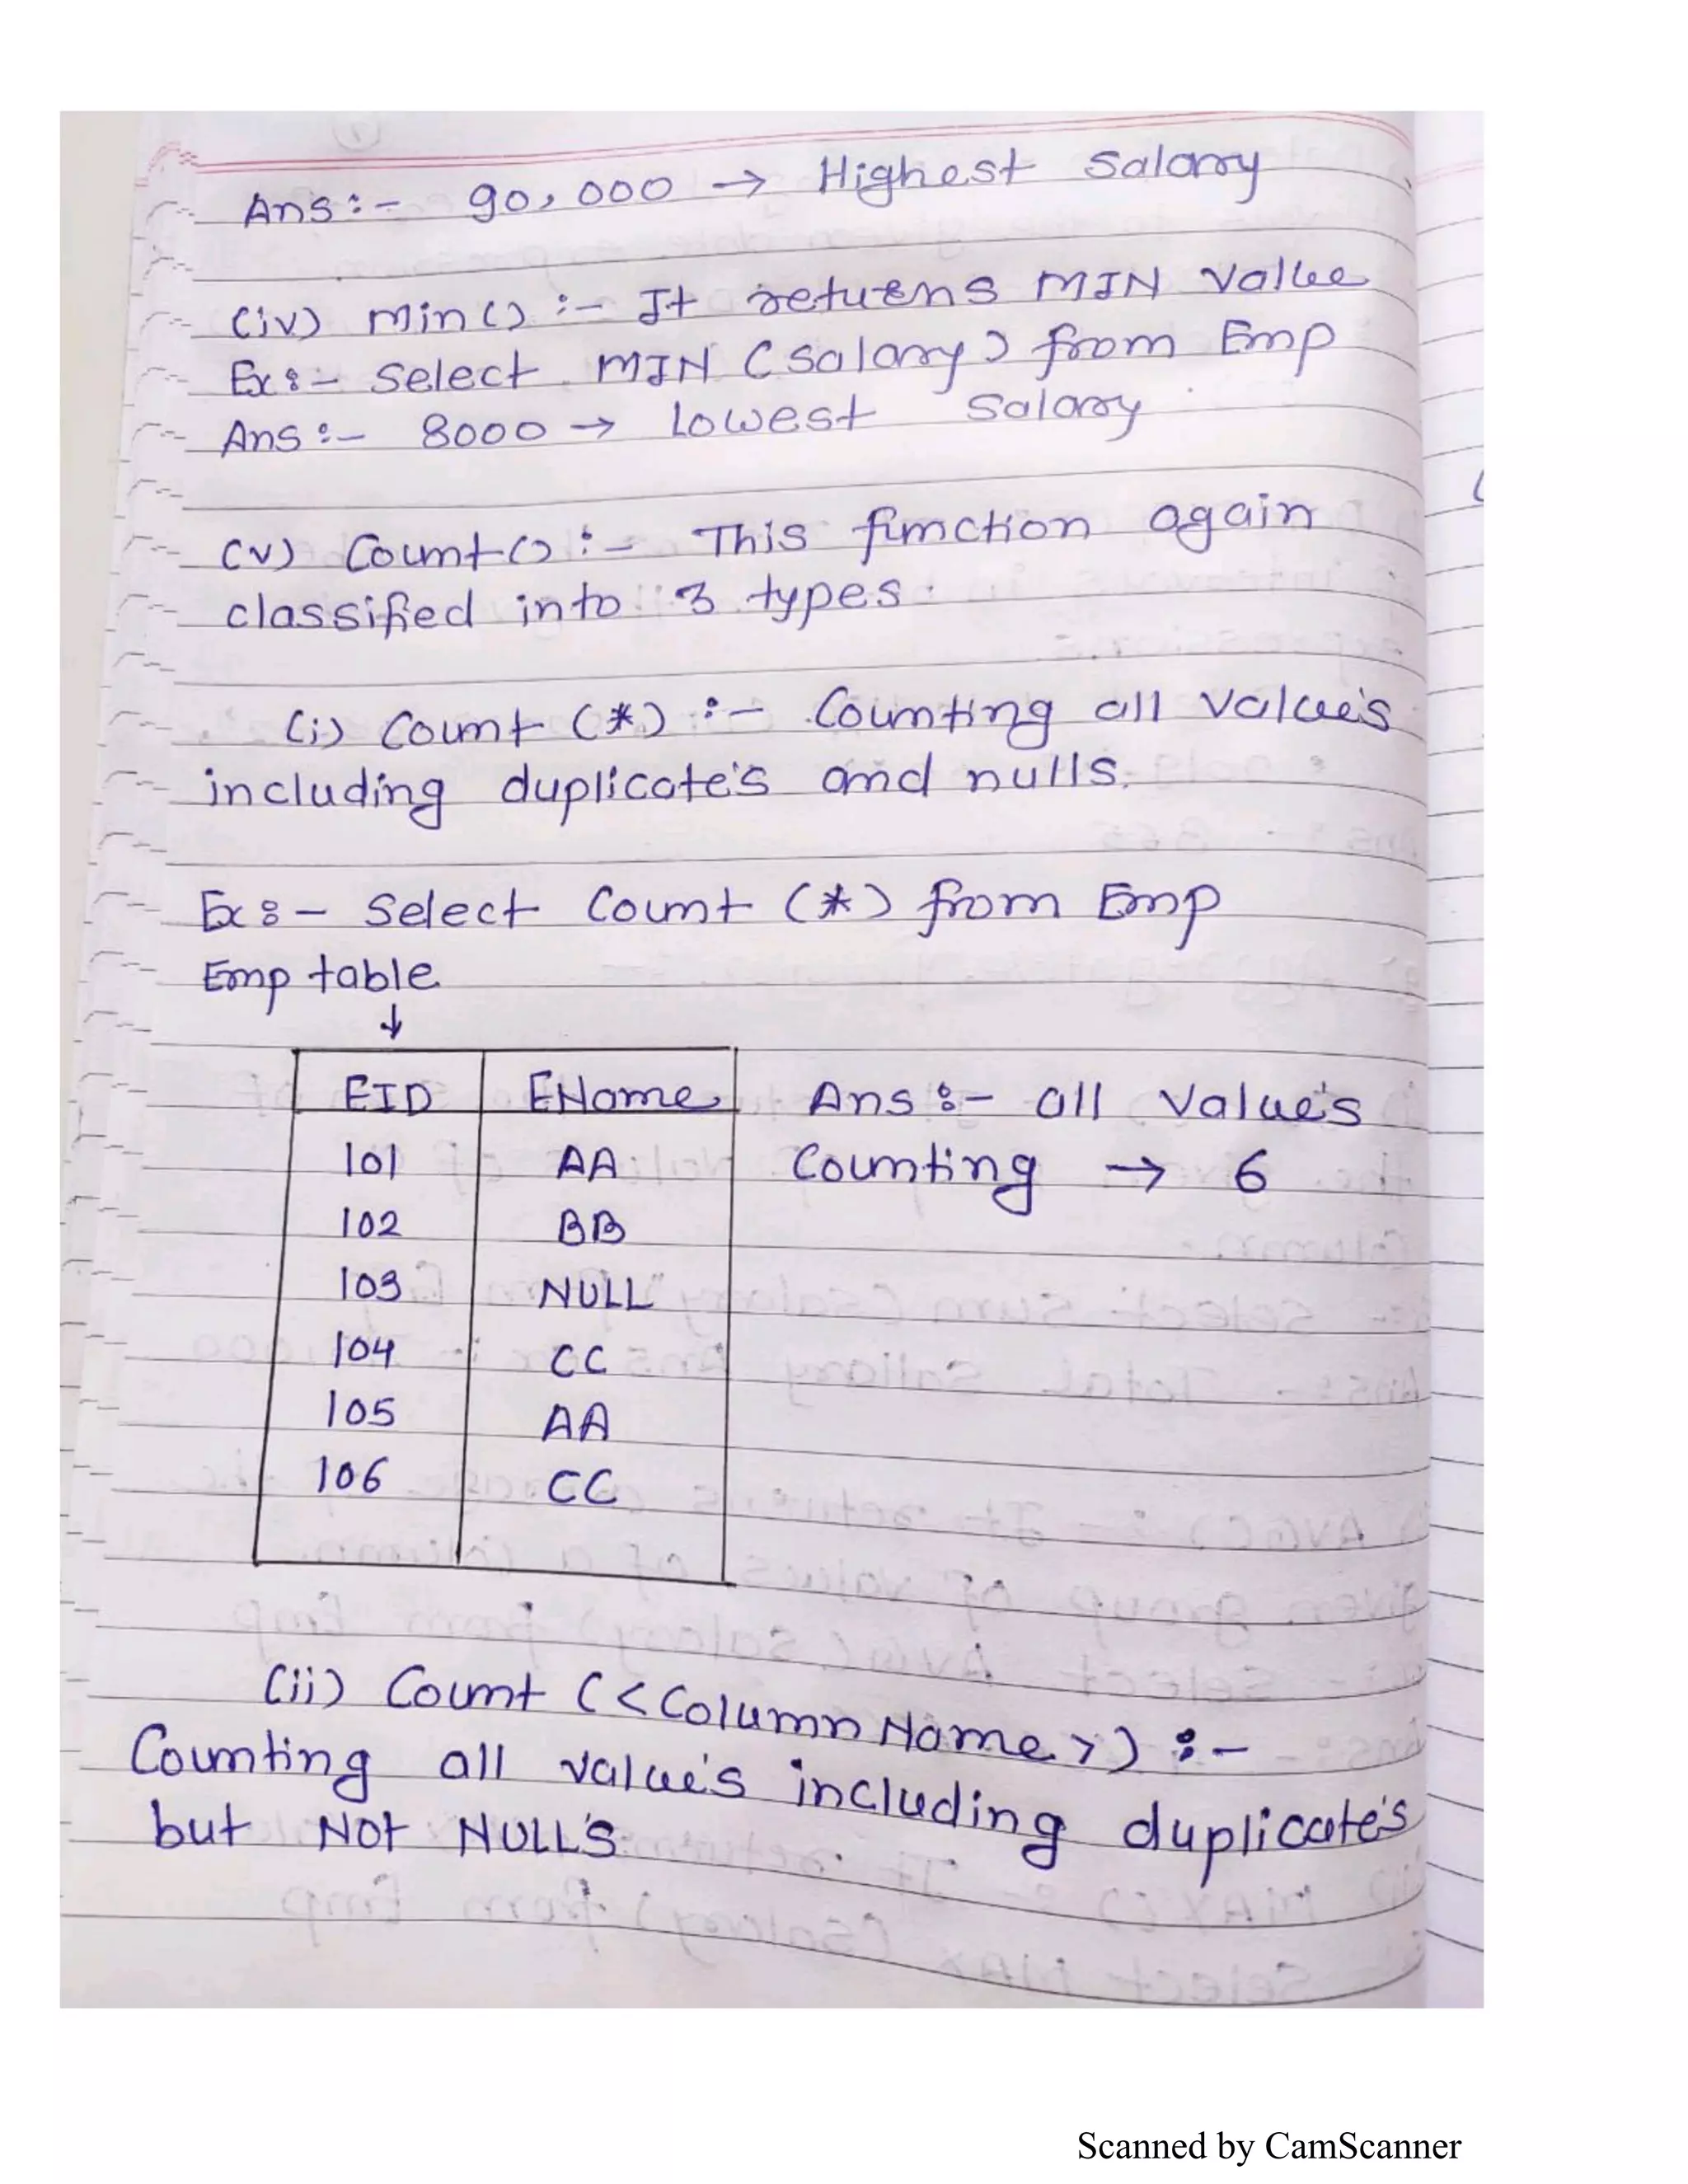 Ans:- 90,000 → Highest Salary
(iv) Min() :- It returns MIN Value
Ex:- Select MIN (Salary) from Emp
Ans:- 8000 → Lowest Salary
(v) Count() :- This function again
classified into 3 types.
(i) Count (*) :- Counting all Value's
including duplicate's and nulls.
Ex:- Select Count (*) from Emp
Emp table
↓
EID EName Ans:- all Value's
101 AA Counting → 6
102 BB
103 NULL
104 CC
105 AA
106 CC
(ii) Count (<Column Name>) :-
Counting all value's including duplicate's
but Not NULL'S
Scanned by CamScanner